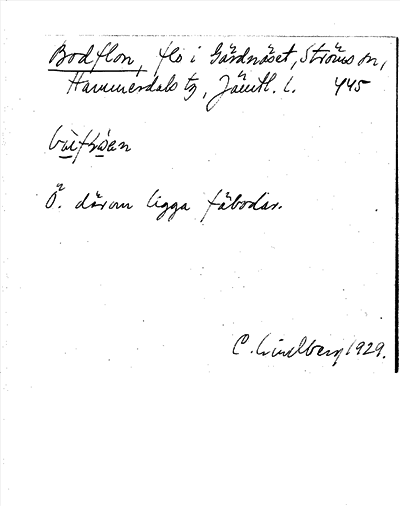 Bodflon, flo i Gårdnäset, Ströms sn,
Hammerdals tg, Jämtl. l. 445
Ö. därom ligga fäbodar.
C. Lindberg 1929.